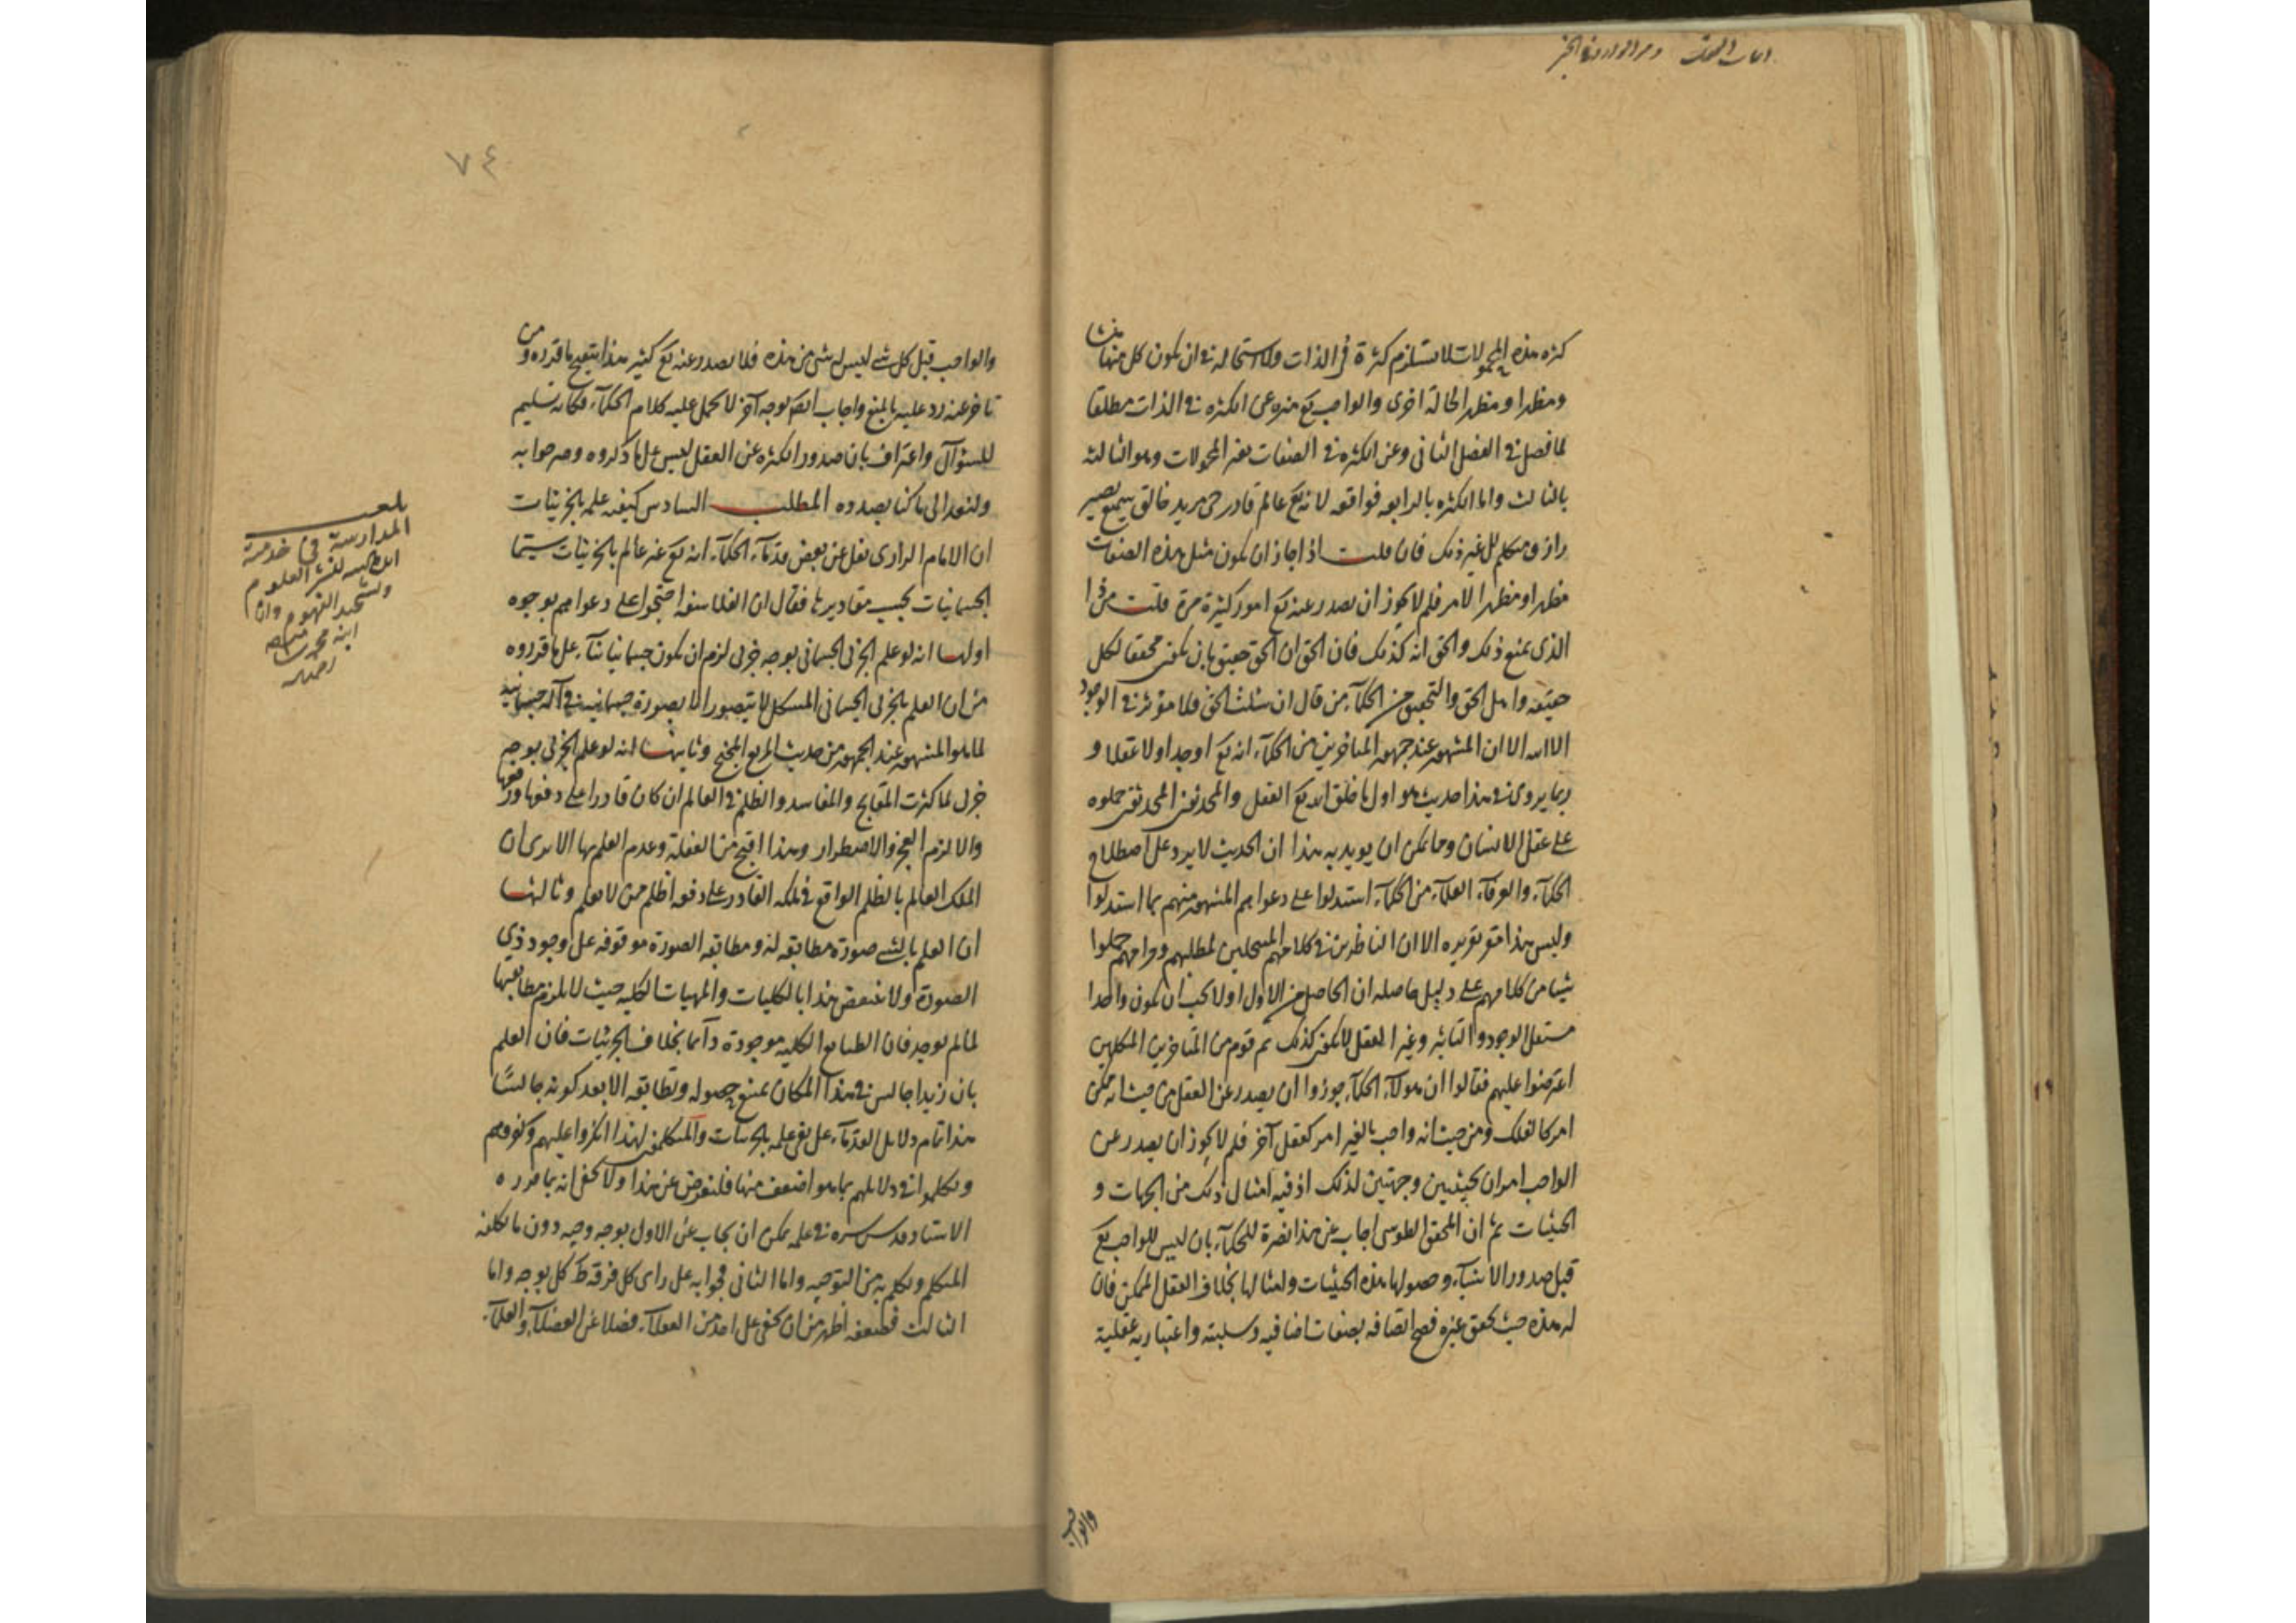 كثرة هذه المحمولات لا تستلزم كثرة في الذات ولا استحالة في ان يكون كل منها منشأ
ومظهرا ومظهرا لحالة اخرى والواجب تع منزه عن الكثرة في الذات مطلقا
لما فصل في الفصل الثاني وعن الكثرة في الصفات بغير المحمولات وهو الثالثة
بالثالث واما الكثرة بالرابعة فواقعة لانه تع عالم قادر حي مريد خالق سميع بصير
رازق متكلم الى غير ذلك فان قلت اذا جاز ان يكون مثل هذه الصفات
مظهرا ومظهرا لامر فلم لا يجوز ان يصدر عنه تع امور كثيرة مرة قلت من ذا
الذي يمنع ذلك والحق انه كذلك فان الحق ان الحق حقيق بان يكون محققا لكل
حقيقة واهل الحق والتحقيق من الحكماء من قال ان سئلت الحق فلا مؤثر في الوجود
الا الله الا ان المشهور عند جمهور المتاخرين من الحكماء انه تع اوجد اولا عقلا و
ربما يروى في هذا حديث هو اول ما خلق الله تع العقل والمحدثون المحدثون حملوه
على عقل الانسان ومما يمكن ان يؤيد به هذا ان الحديث لا يرد على اصطلاح
الحكماء والعرفاء العلماء من الحكماء استدلوا على دعواهم المشهور منهم بما استدلوا
وليس هذا مقر تقريره الا ان الناظرين في كلامهم لمطلبهم ومرامهم حملوا
شيئا من كلامهم على دليل حاصله ان الحاصل من الاول اولا يجب ان يكون واحدا
مستقل الوجود والتاثير وغير العقل لا يكون كذلك ثم قوم من المتاخرين المتكلمين
اعترضوا عليهم فقالوا ان هؤلاء الحكماء جوزوا ان يصدر عن العقل من حيث انه ممكن
امر كالفلك ومن حيث انه واجب بالغير امر كعقل آخر فلم لا يجوز ان يصدر عن
الواجب امران بحيثيتين وجهتين لذلك اذ فيه امثال ذلك من الجهات و
الحيثيات ثم ان المحقق الطوسي اجاب عن هذا نصرة للحكماء بان ليس للواجب تع
قبل صدور الاشياء وحصولها هذه الحيثيات وامثالها بخلاف العقل الممكن فان
له هذه حيث تحقق غيره فصح اتصافه بصفات اضافية وسلبية واعتبارية عقلية
والواجب
٧٤
والواجب قبل كل شئ ليس له شئ من هذه فلا يصدر عنه تع كثير هذا تنقيح ما قرره ومن
تاخر عنه رد عليه بالمنع واجاب ايضا بوجه آخر لا يحمل عليه كلام الحكماء فكانه تسليم
للسؤال واعتراف بان صدور الكثرة عن العقل ليس على ما ذكروه وصرحوا به
ولنعد الى ما كنا بصدده المطلب السادس كيفية علمه بالجزئيات
ان الامام الرازي نقل عن بعض قدماء الحكماء انه تع غير عالم بالجزئيات سيما
الجسمانيات بحسب مقاديرها فقال ان الفلاسفة احتجوا على دعواهم بوجوه
اولها انه لو علم الجزئي الجسماني بوجه جزئي لزم ان يكون جسمانيا بناء على ما قرروه
من ان العلم بالجزئي الجسماني المتشكل لا يتصور الا بصورة جسمانية في آلة جسمانية
لما هو المشهور عند الجمهور من حديث المربع المجنح وثانيها انه لو علم الجزئي بوجه
جزئي لما كثرت المقابح والمفاسد والظلم في العالم ان كان قادرا على دفعها ورفعها
والا لزم العجز والاضطرار وهذا اقبح من الغفلة وعدم العلم بها الا يرى ان
الملك العالم بالظلم الواقع في ملكه القادر على دفعه اظلم ممن لا يعلم وثالثها
ان العلم بالشئ صورة مطابقة له ومطابقة الصورة موقوفة على وجود ذي
الصورة ولا ينتقض هذا بالكليات والمهيات الكلية حيث لا يلزم مطابقتها
لما لم يوجد فان الطبايع الكلية موجودة دائما بخلاف الجزئيات فان العلم
بان زيدا جالس في هذا المكان يمتنع حصوله وتطابقه الا بعد كونه جالسا
هذا تمام دلايل القدماء على نفي علمه بالجزئيات والمتكلمون لهذا انكروا عليهم وكفروهم
وتكلموا في دلايلهم بما هو اضعف منها فلنعرض عن هذا ولا يخفى انه بما قرره
الاستاد قدس سره في علمه يمكن ان يجاب عن الاول بوجه وجيه دون ما تكلفه
المتكلم وتكلم به من التوجيه واما الثاني فجوابه على راي كل فرقة ظ كل بوجه واما
الثالث فضعفه اظهر من ان يخفى على احد من العقلاء فضلا عن الفضلاء والعلماء
بلغت
المدارسة في خدمة
لنشر العلوم
وتشحيذ الفهوم وانا
ابنه محمد